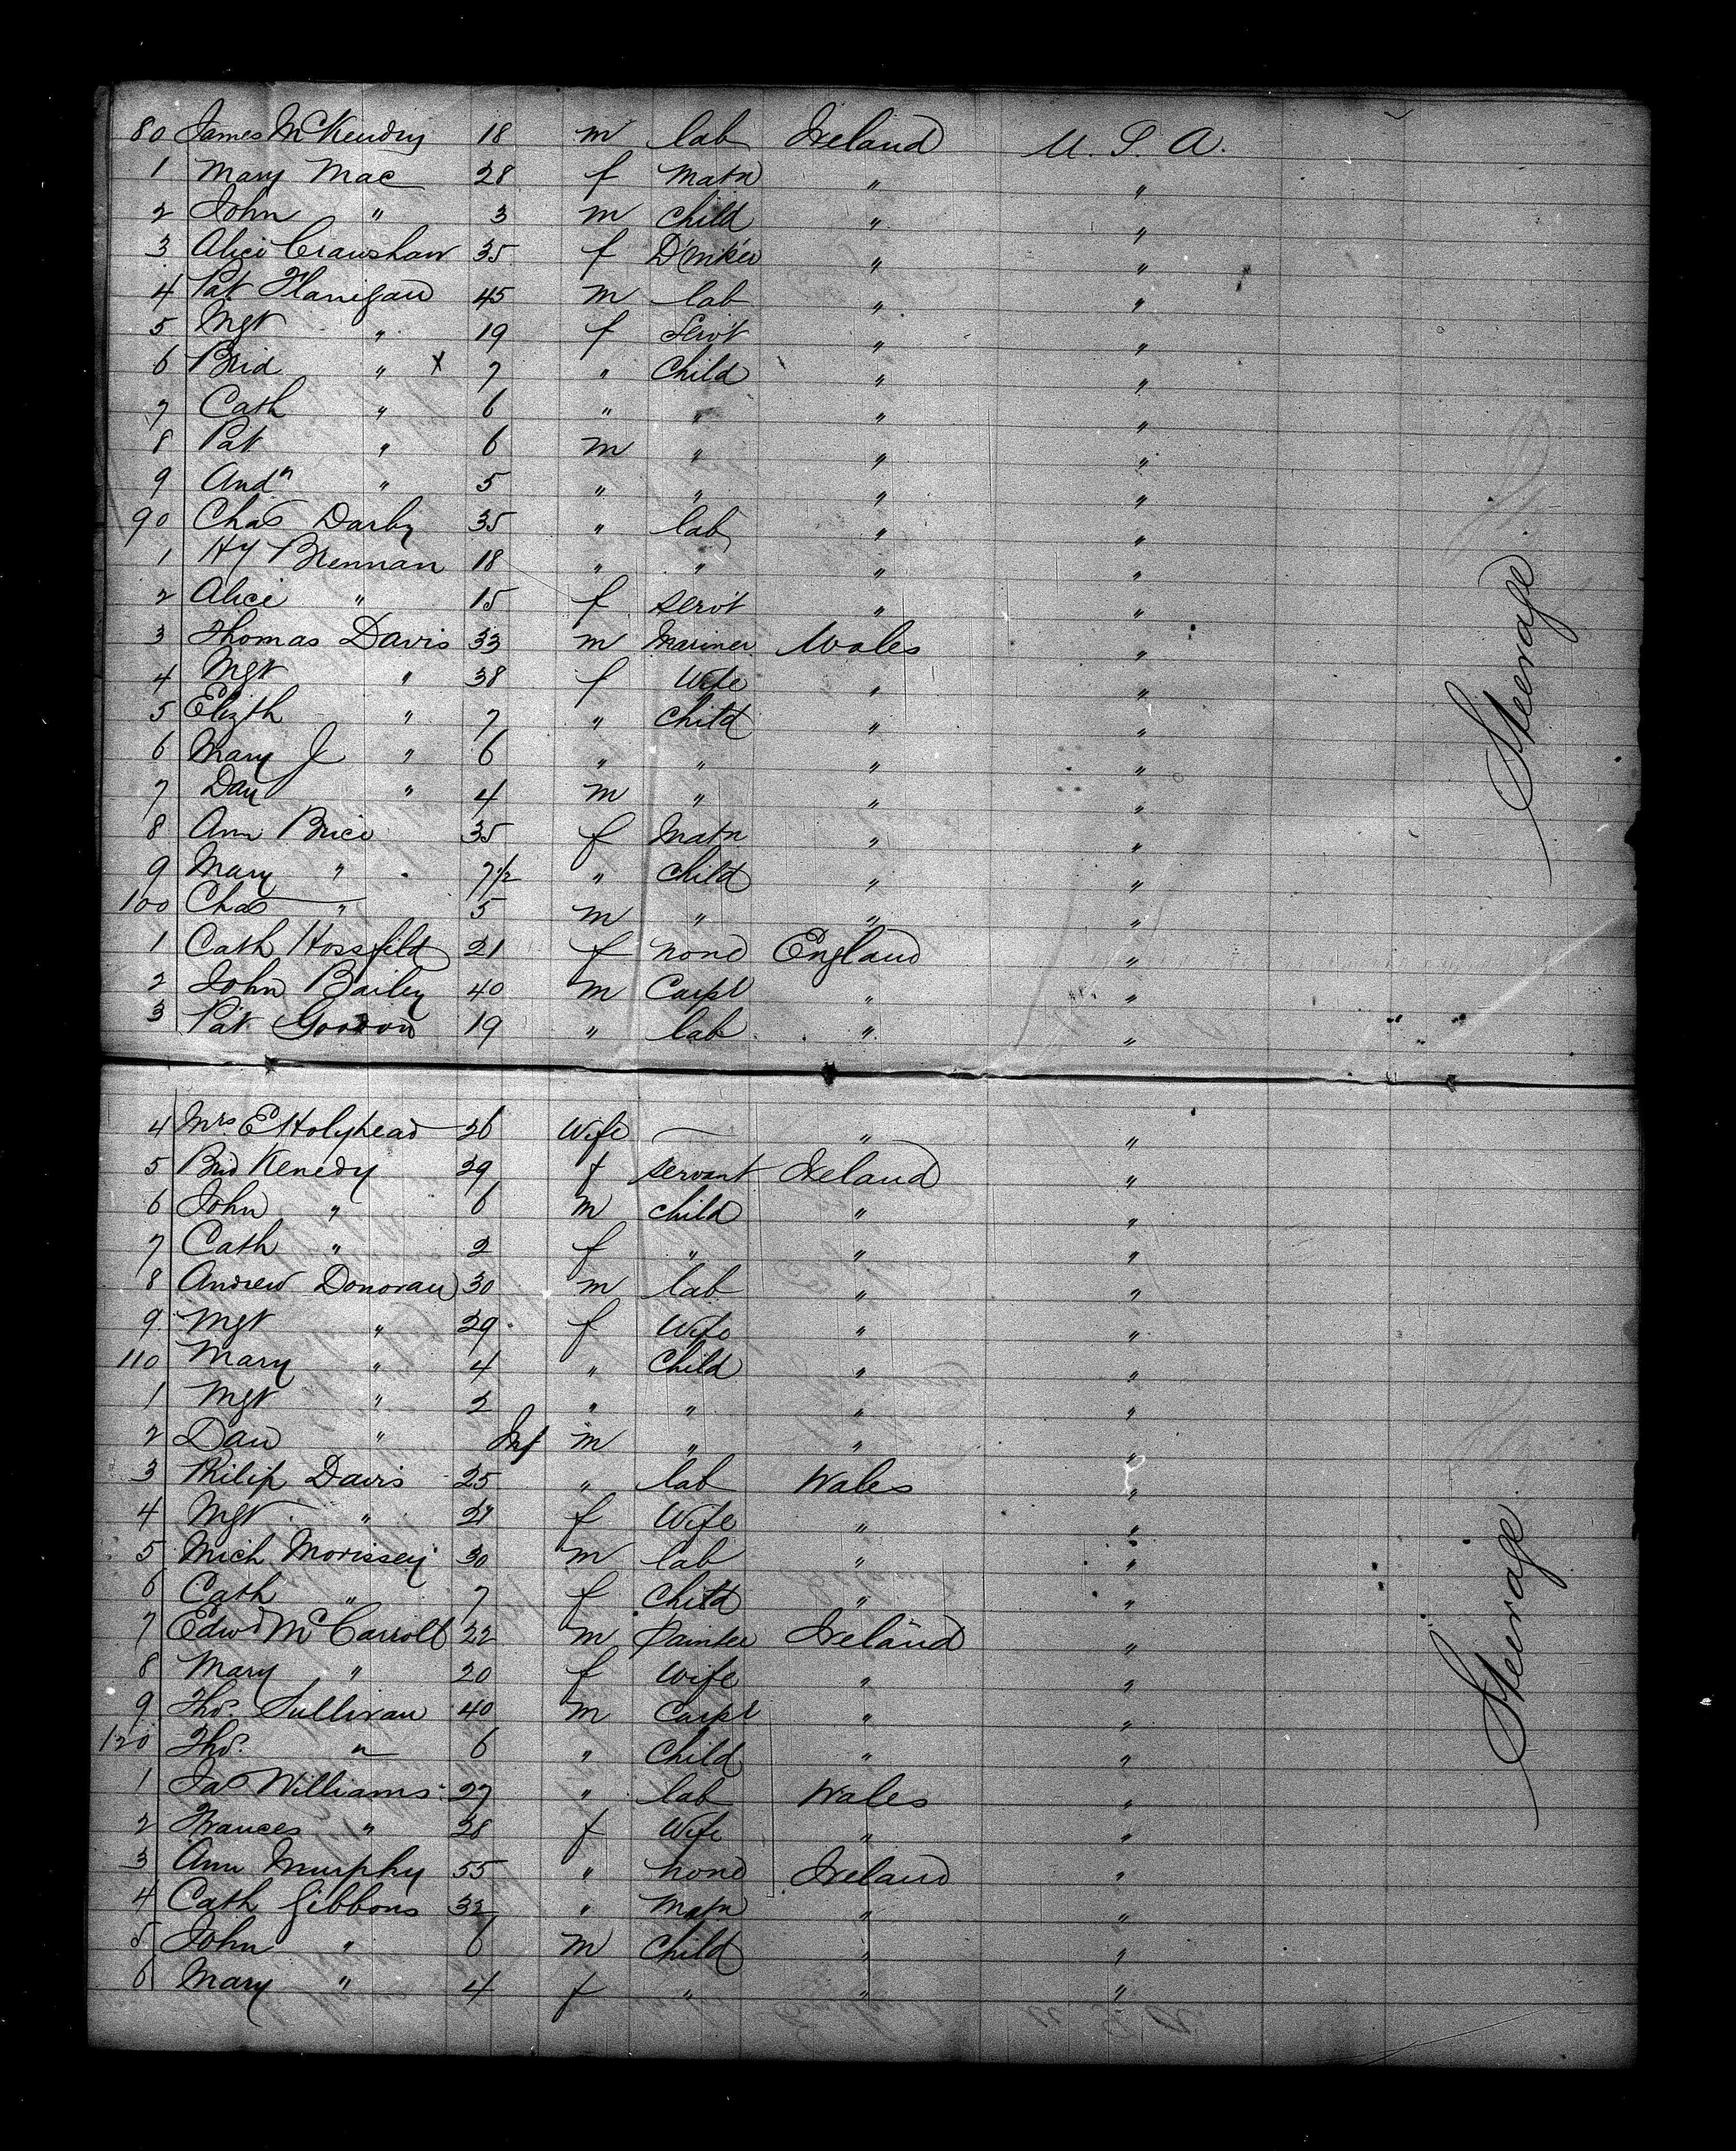 80 James McKendry 18 m lab Ireland U. S. A.
1 Mary Mac 28 f Matn " "
2 John " 3 m Child " "
3 Alice Crawshaw 35 f D'mker " "
4 Pat Flanigan 45 m lab " "
5 Mgt " 19 f Servt " "
6 Brid " x 7 " Child " "
7 Cath " 6 " " " "
8 Pat " 6 m " " "
9 Andw " 5 " " " "
90 Chas Darby 35 " lab " "
1 Hy Brennan 18 " " " "
2 Alice " 15 f servt " "
3 Thomas Davis 33 m Mariner Wales "
4 Mgt " 38 f Wife " "
5 Elizth " 7 " Child " "
6 Mary J " 6 " " " "
7 Dan " 4 m " " "
8 Ann Price 35 f Matn " "
9 Mary " 7 1/2 " Child " "
100 Chas " 5 m " " "
1 Cath Hossfild 21 f none England "
2 John Bailey 40 m Carpt " "
3 Pat Gordon 19 " lab " "
Steerage
4 Mrs E Holyhead 26 Wife — " "
5 Brid Kenedy 29 f servant Ireland "
6 John " 6 m child " "
7 Cath " 2 f " " "
8 Andrew Donovan 30 m lab " "
9 Mgt " 29 f Wife " "
110 Mary " 4 " Child " "
1 Mgt " 2 " " " "
2 Dan " Inf m " " "
3 Philip Davis 25 " lab Wales "
4 Mgt " 21 f Wife " "
5 Mich Morissey 30 m lab " "
6 Cath " 7 f Child " "
7 Edwd McCarroll 22 m Painter Ireland "
8 Mary " 20 f Wife " "
9 Thos. Sullivan 40 m Carpt " "
120 Thos. " 6 " Child " "
1 Jas Williams 27 " lab Wales "
2 Frances " 28 f Wife " "
3 Ann Murphy 55 " none Ireland "
4 Cath Gibbons 32 " Matn " "
5 John " 6 m Child " "
6 Mary " 4 f " " "
Steerage